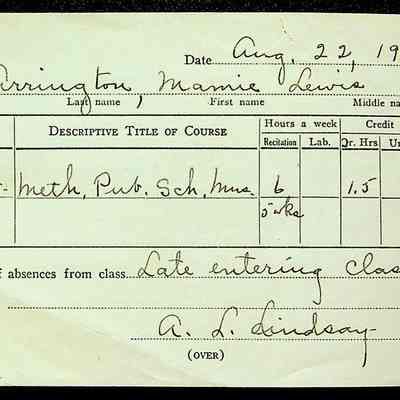 Date Aug. 22, 19
arrington, Mamie Lewis
Last name First name Middle na
DESCRIPTIVE TITLE OF COURSE Hours a week Credit
Recitation Lab. Qr. Hrs Un
Meth. Pub. Sch. Mus. 6 1.5
5 wks
f absences from class Late entering clas
A. L. Lindsay
(OVER)